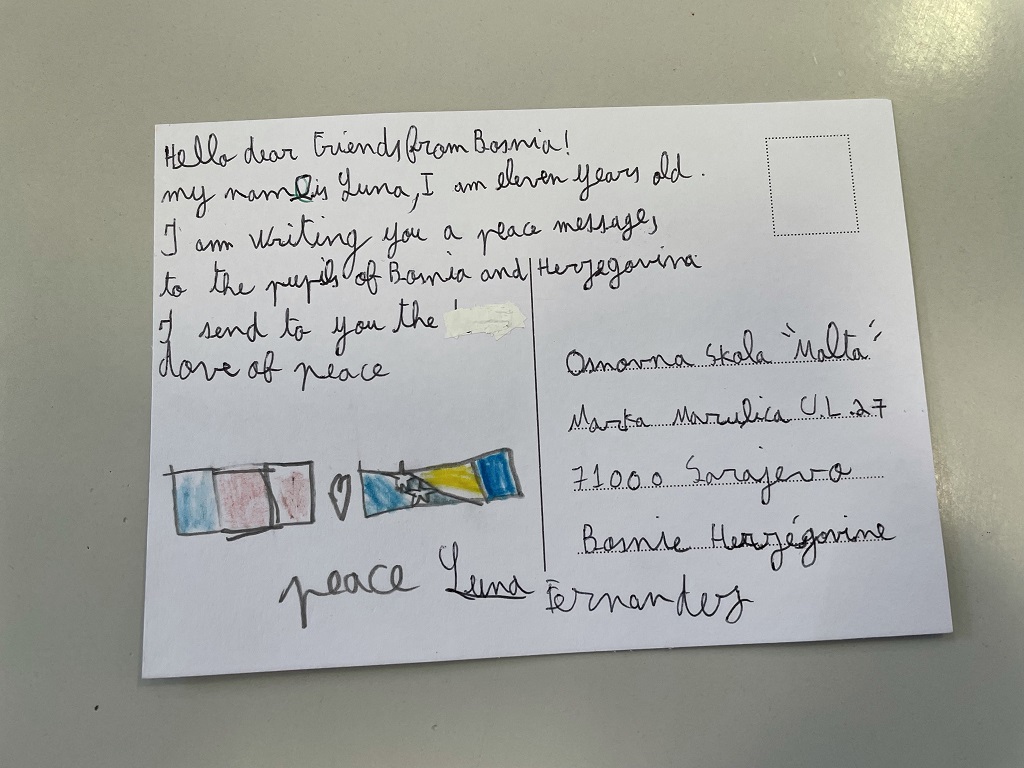 Hello dear Friends from Bosnia!
my name is Luna, I am eleven years old.
I am writing you a peace message,
to the pupils of Bosnia and Herzegovina
I send to you the
dove of peace
Osnovna Skola "Malta"
Marka Marulica U.L.27
71000 Sarajevo
Bosnie Herzégovine
peace Luna Fernandez